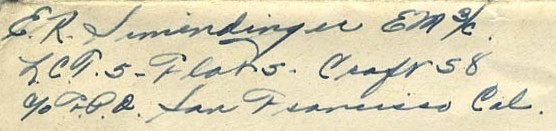 E.R. Simendinger EM 3/c.
L.C.T. 5 - Flot 5 - Craft 58
c/o F.P.O. San Francisco Cal.